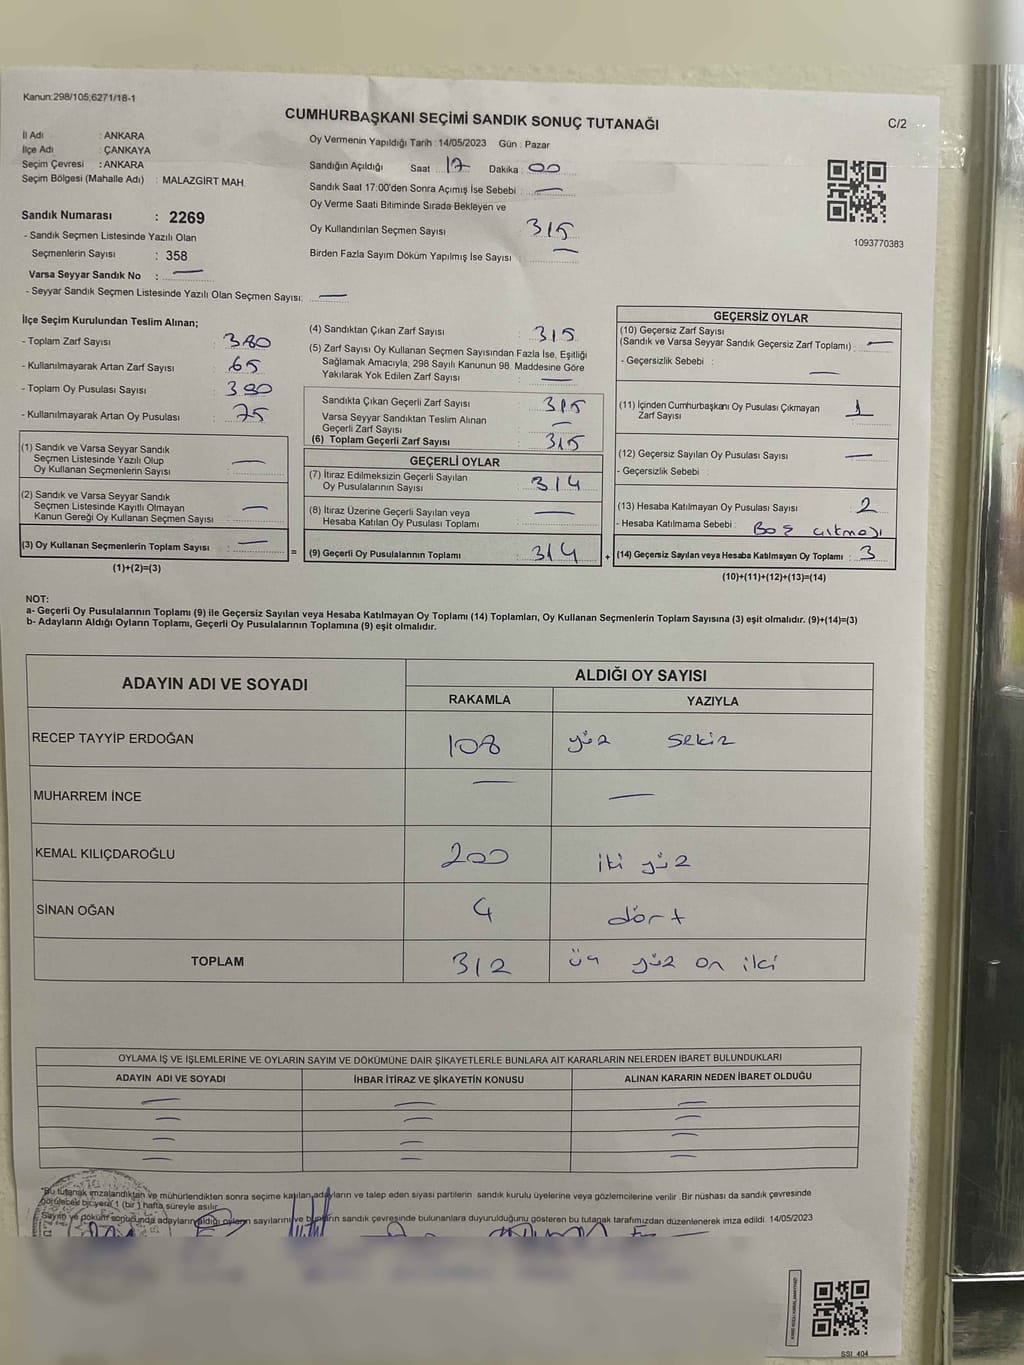 Kanun:298/105;6271/18-1
CUMHURBAŞKANI SEÇİMİ SANDIK SONUÇ TUTANAĞI
C/2
İl Adı : ANKARA
İlçe Adı : ÇANKAYA
Seçim Çevresi : ANKARA
Seçim Bölgesi (Mahalle Adı) : MALAZGİRT MAH.
Sandık Numarası : 2269
- Sandık Seçmen Listesinde Yazılı Olan
Seçmenlerin Sayısı : 358
Varsa Seyyar Sandık No : —
- Seyyar Sandık Seçmen Listesinde Yazılı Olan Seçmen Sayısı: —
Oy Vermenin Yapıldığı Tarih : 14/05/2023 Gün : Pazar
Sandığın Açıldığı Saat : 17 Dakika : 00
Sandık Saat 17:00'den Sonra Açımış İse Sebebi : —
Oy Verme Saati Bitiminde Sırada Bekleyen ve
Oy Kullandırılan Seçmen Sayısı : 315
Birden Fazla Sayım Döküm Yapılmış İse Sayısı : —
1093770383
İlçe Seçim Kurulundan Teslim Alınan;
- Toplam Zarf Sayısı : 380
- Kullanılmayarak Artan Zarf Sayısı : 65
- Toplam Oy Pusulası Sayısı : 390
- Kullanılmayarak Artan Oy Pusulası : 75
(1) Sandık ve Varsa Seyyar Sandık
Seçmen Listesinde Yazılı Olup
Oy Kullanan Seçmenlerin Sayısı : —
(2) Sandık ve Varsa Seyyar Sandık
Seçmen Listesinde Kayıtlı Olmayan
Kanun Gereği Oy Kullanan Seçmen Sayısı : —
(3) Oy Kullanan Seçmenlerin Toplam Sayısı : —
(1)+(2)=(3)
=
(4) Sandıktan Çıkan Zarf Sayısı : 315
(5) Zarf Sayısı Oy Kullanan Seçmen Sayısından Fazla İse, Eşitliği
Sağlamak Amacıyla, 298 Sayılı Kanunun 98. Maddesine Göre
Yakılarak Yok Edilen Zarf Sayısı : —
Sandıkta Çıkan Geçerli Zarf Sayısı : 315
Varsa Seyyar Sandıktan Teslim Alınan
Geçerli Zarf Sayısı : —
(6) Toplam Geçerli Zarf Sayısı : 315
GEÇERLİ OYLAR
(7) İtiraz Edilmeksizin Geçerli Sayılan
Oy Pusulalarının Sayısı : 314
(8) İtiraz Üzerine Geçerli Sayılan veya
Hesaba Katılan Oy Pusulası Toplamı : —
(9) Geçerli Oy Pusulalarının Toplamı : 314
+
GEÇERSİZ OYLAR
(10) Geçersiz Zarf Sayısı
(Sandık ve Varsa Seyyar Sandık Geçersiz Zarf Toplamı) : —
- Geçersizlik Sebebi : —
(11) İçinden Cumhurbaşkanı Oy Pusulası Çıkmayan
Zarf Sayısı : 1
(12) Geçersiz Sayılan Oy Pusulası Sayısı : —
- Geçersizlik Sebebi :
(13) Hesaba Katılmayan Oy Pusulası Sayısı : 2
- Hesaba Katılmama Sebebi : Boş çıkması
(14) Geçersiz Sayılan veya Hesaba Katılmayan Oy Toplamı : 3
(10)+(11)+(12)+(13)=(14)
NOT:
a- Geçerli Oy Pusulalarının Toplamı (9) ile Geçersiz Sayılan veya Hesaba Katılmayan Oy Toplamı (14) Toplamları, Oy Kullanan Seçmenlerin Toplam Sayısına (3) eşit olmalıdır. (9)+(14)=(3)
b- Adayların Aldığı Oyların Toplamı, Geçerli Oy Pusulalarının Toplamına (9) eşit olmalıdır.
ADAYIN ADI VE SOYADI ALDIĞI OY SAYISI
RAKAMLA YAZIYLA
RECEP TAYYİP ERDOĞAN 108 yüz sekiz
MUHARREM İNCE — —
KEMAL KILIÇDAROĞLU 200 iki yüz
SİNAN OĞAN 4 dört
TOPLAM 312 üç yüz on iki
OYLAMA İŞ VE İŞLEMLERİNE VE OYLARIN SAYIM VE DÖKÜMÜNE DAİR ŞİKAYETLERLE BUNLARA AİT KARARLARIN NELERDEN İBARET BULUNDUKLARI
ADAYIN ADI VE SOYADI İHBAR İTİRAZ VE ŞİKAYETİN KONUSU ALINAN KARARIN NEDEN İBARET OLDUĞU
— — —
— — —
— — —
— — —
*Bu tutanak imzalandıktan ve mühürlendikten sonra seçime katılan adayların ve talep eden siyasi partilerin sandık kurulu üyelerine veya gözlemcilerine verilir. Bir nüshası da sandık çevresinde
görülebilecek bir yere 1 (bir) hafta süreyle asılır.
Sayım ve döküm sonucunda adayların aldığı oyların sayılarını ve bunların sandık çevresinde bulunanlara duyurulduğunu gösteren bu tutanak tarafımızdan düzenlenerek imza edildi. 14/05/2023
SSI_404